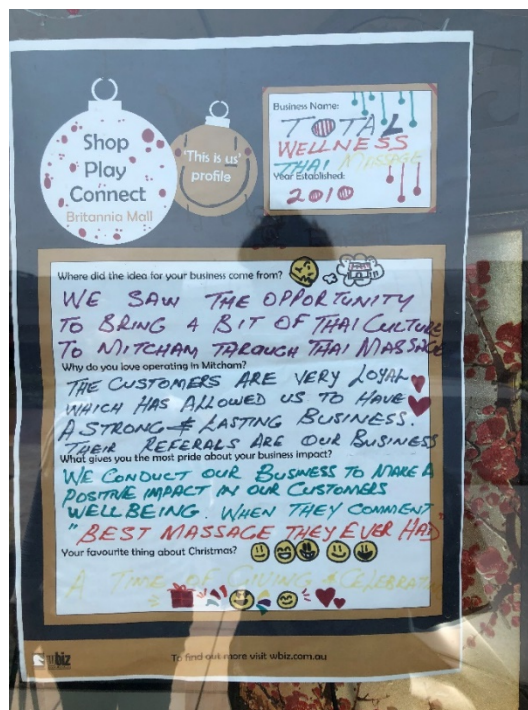 Shop
Play
Connect
Britannia Mall
'This is us'
profile
Business Name:
TOTAL
WELLNESS
THAI MASSAGE
Year Established:
2010
Where did the idea for your business come from?
WE SAW THE OPPORTUNITY
TO BRING A BIT OF THAI CULTURE
TO MITCHAM THROUGH THAI MASSAGE
Why do you love operating in Mitcham?
THE CUSTOMERS ARE VERY LOYAL
WHICH HAS ALLOWED US TO HAVE
A STRONG & LASTING BUSINESS.
THEIR REFERALS ARE OUR BUSINESS
What gives you the most pride about your business impact?
WE CONDUCT OUR BUSINESS TO MAKE A
POSITIVE IMPACT IN OUR CUSTOMERS
WELLBEING. WHEN THEY COMMENT
"BEST MASSAGE THEY EVER HAD
Your favourite thing about Christmas?
A TIME OF GIVING & CELEBRATI
wbiz
To find out more visit wbiz.com.au